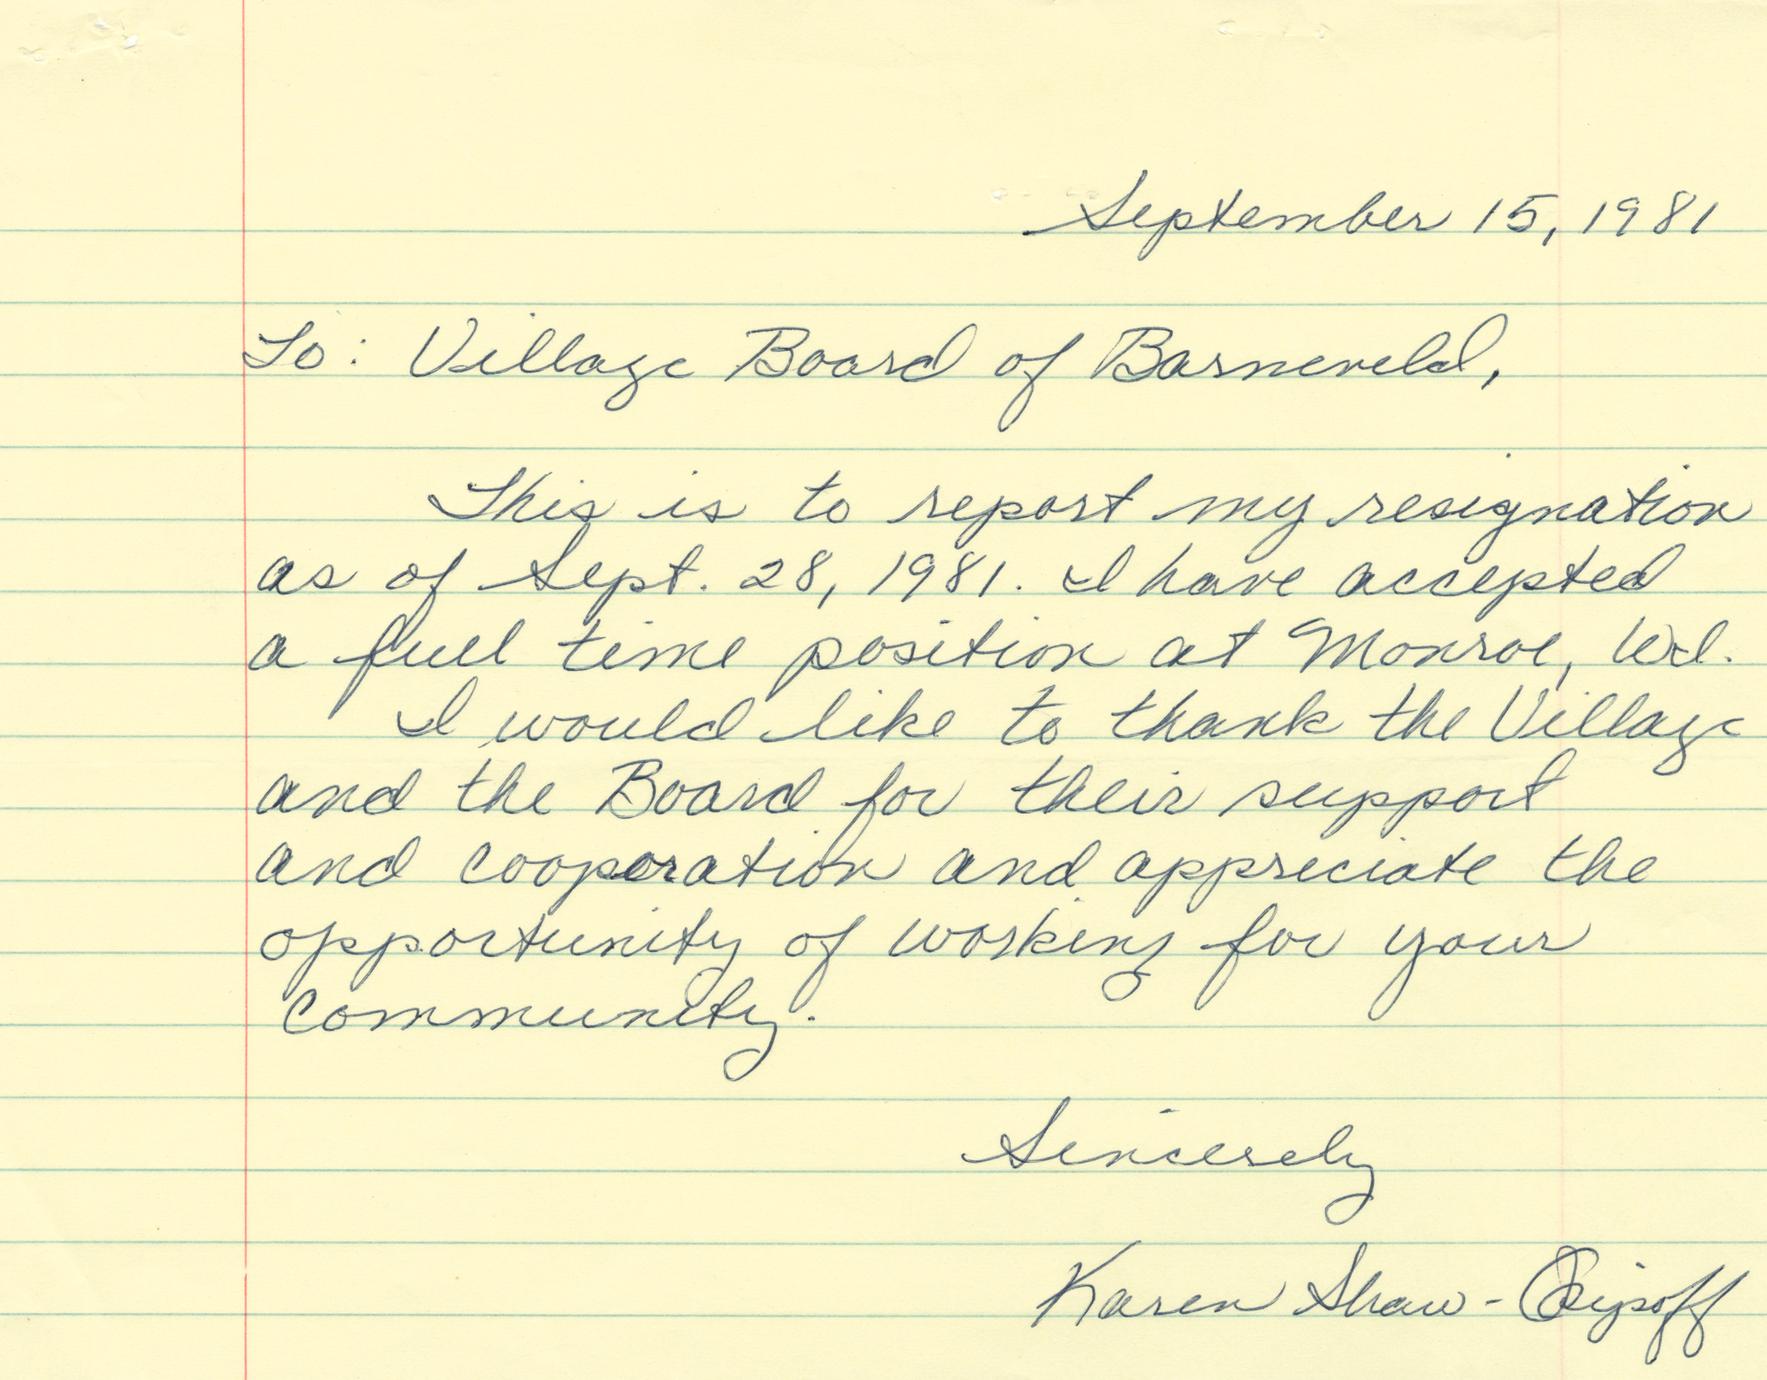 September 15, 1981
To: Village Board of Barneveld,
This is to report my resignation
as of Sept. 28, 1981. I have accepted
a full time position at Monroe, WI.
I would like to thank the Village
and the Board for their support
and cooperation and appreciate the
opportunity of working for your
community.
Sincerely
Karen Shaw-